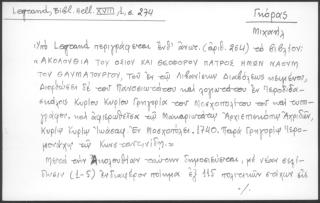 Legrand, Bibl. Hell. XVIII, 1, σ. 274
Γκόρας
Μιχαήλ
Ὑπὸ Legrand περιγράφεται (ἀριθ. 264) τὸ βιβλίον:
«ΑΚΟΛΟΥΘΙΑ ΤΟΥ ΟΣΙΟΥ ΚΑΙ ΘΕΟΦΟΡΟΥ ΠΑΤΡΟΣ ΗΜΩΝ ΝΑΟΥΜ
ΤΟΥ ΘΑΥΜΑΤΟΥΡΓΟΥ, Τοῦ ἐν τῷ Διαβόλεως κειμένου,
Διορθώσει δὲ τοῦ Πανοσιωτάτου καὶ λογιωτάτου ἐν Ἱεροδιδα-
σκάλοις Κυρίου Κυρίου Γρηγορίου τοῦ Μοσχοπολίτου τοῦ καὶ τυπο-
γράφου, καὶ ἀφιερωθεῖσα τῷ Μακαριωτάτῳ Ἀρχιεπισκόπῳ Ἀχριδῶν,
Κυρίῳ Κυρίῳ Ἰωάσαφ. Ἐν Μοσχοπόλει. 1740. Παρὰ Γρηγορίῳ Ἱερο-
μονάχῳ τῷ Κωνσταντινίδῃ.»
Μετὰ τὴν Ἀκολουθίαν ταύτην δημοσιεύεται, μὲ νέαν σελί-
δωσιν (1-5) ἐνδιαφέρον ποίημα ἐξ 115 πολιτικῶν στίχων εἰς
./.